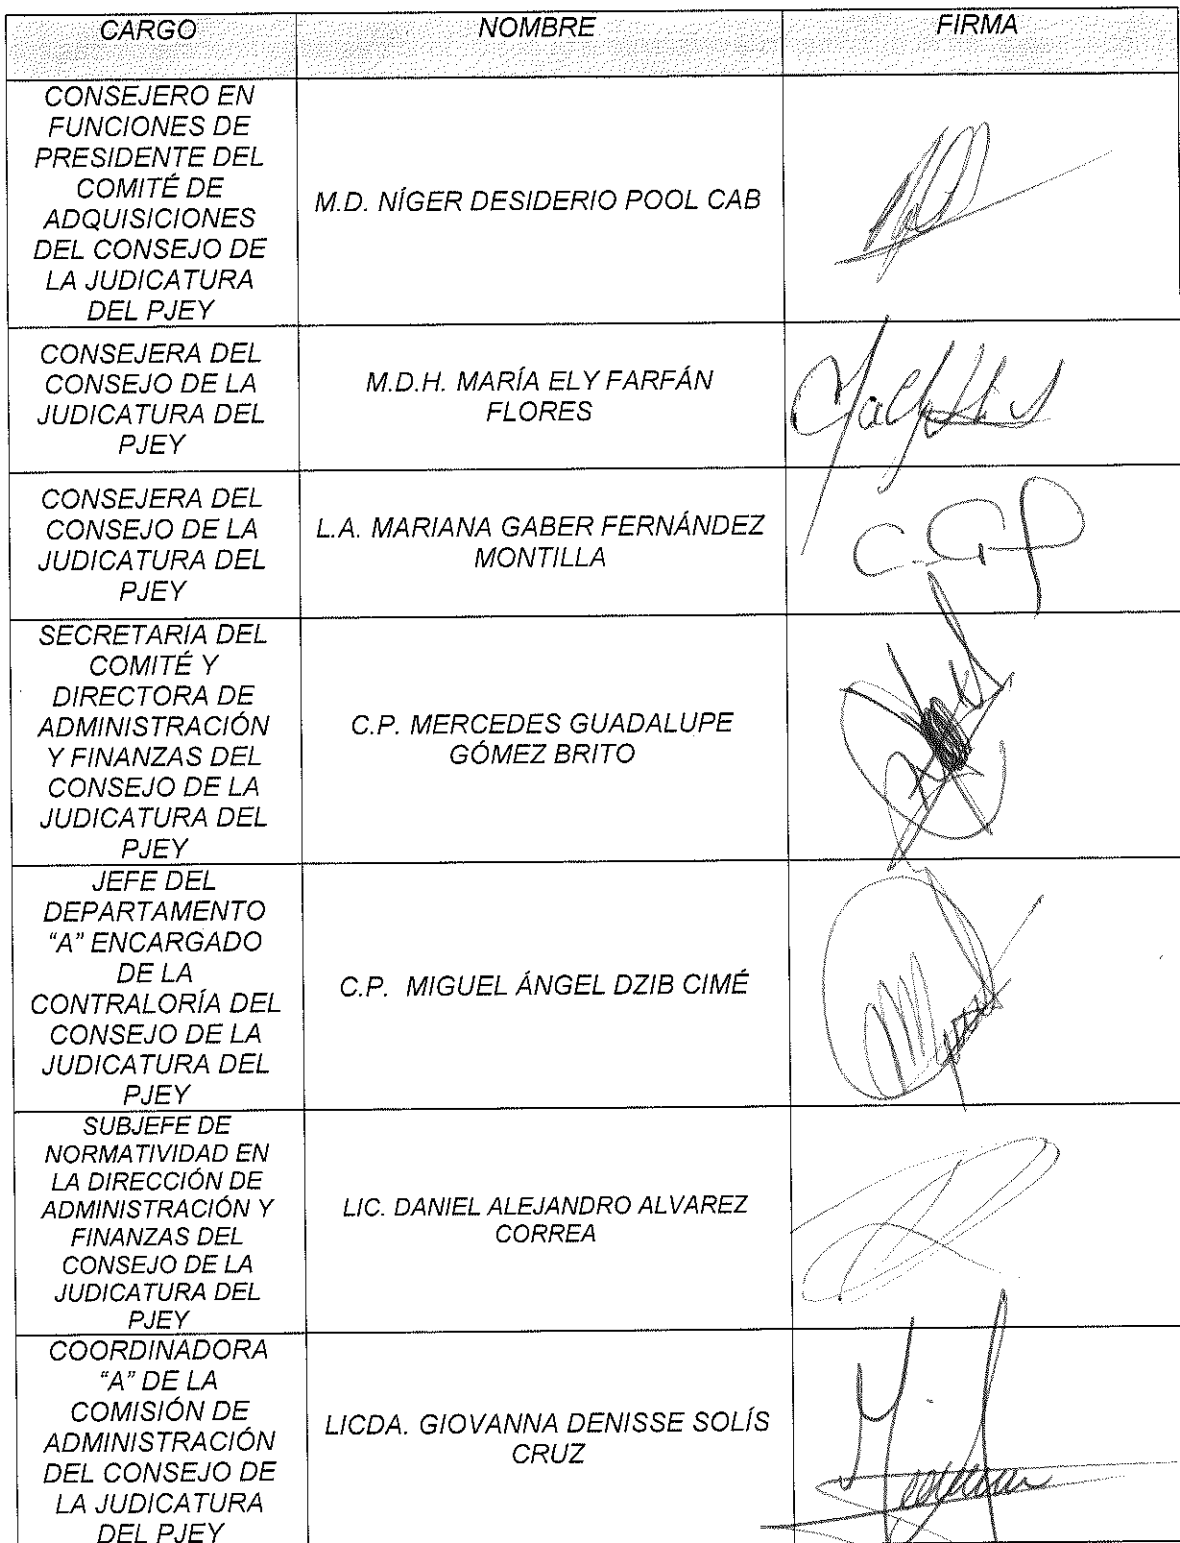 CARGO NOMBRE FIRMA
CONSEJERO EN
FUNCIONES DE
PRESIDENTE DEL
COMITÉ DE
ADQUISICIONES
DEL CONSEJO DE
LA JUDICATURA
DEL PJEY
M.D. NÍGER DESIDERIO POOL CAB
CONSEJERA DEL
CONSEJO DE LA
JUDICATURA DEL
PJEY
M.D.H. MARÍA ELY FARFÁN
FLORES
CONSEJERA DEL
CONSEJO DE LA
JUDICATURA DEL
PJEY
L.A. MARIANA GABER FERNÁNDEZ
MONTILLA
SECRETARIA DEL
COMITÉ Y
DIRECTORA DE
ADMINISTRACIÓN
Y FINANZAS DEL
CONSEJO DE LA
JUDICATURA DEL
PJEY
C.P. MERCEDES GUADALUPE
GÓMEZ BRITO
JEFE DEL
DEPARTAMENTO
"A" ENCARGADO
DE LA
CONTRALORÍA DEL
CONSEJO DE LA
JUDICATURA DEL
PJEY
C.P. MIGUEL ÁNGEL DZIB CIMÉ
SUBJEFE DE
NORMATIVIDAD EN
LA DIRECCIÓN DE
ADMINISTRACIÓN Y
FINANZAS DEL
CONSEJO DE LA
JUDICATURA DEL
PJEY
LIC. DANIEL ALEJANDRO ALVAREZ
CORREA
COORDINADORA
"A" DE LA
COMISIÓN DE
ADMINISTRACIÓN
DEL CONSEJO DE
LA JUDICATURA
DEL PJEY
LICDA. GIOVANNA DENISSE SOLÍS
CRUZ